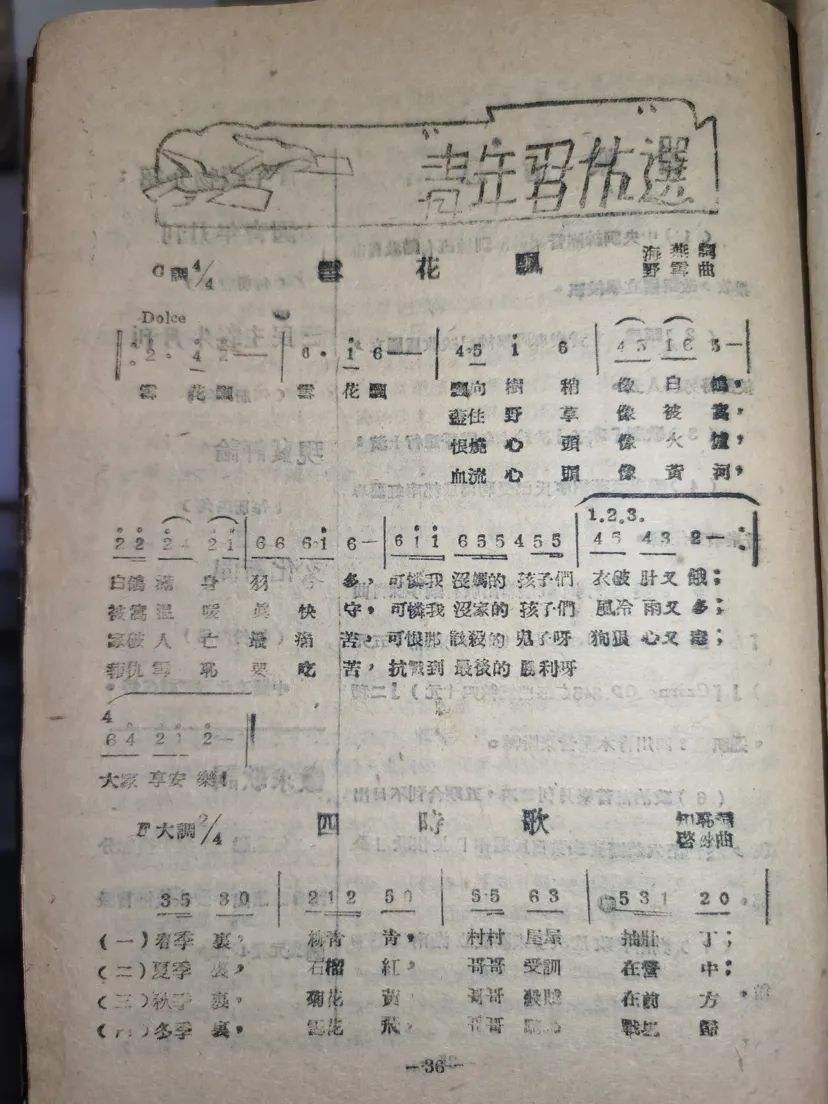 青年習作選
C調4/4 雪花飄 海燕詞
野雲曲
Dolce
2· 4 2—— 6· 1 6—— 4·5 1 6 45 16 5—
雪 花飄 雪 花飄 飄向樹梢 像白鵝，
蓋住野草 像被窩，
恨燒心頭 像火爐，
血流心頭 像黃河，
22 24 21 66 6·1 6— 611 655 455 1.2.3. 45 43 2—
白鵝滿身羽 多，可憐我沒媽的孩子們 衣破肚又餓；
被窩溫暖真快 可憐我沒家的孩子們 風冷雨又多；
家破人亡最痛苦，可恨那 的鬼子呀 狗狠心又毒；
報仇雪恥要吃苦，抗戰到最後的勝利呀
4
64 21 2—
大家享安樂！
F大調2/4 四時歌
35 30 212 50 55 63 531 20
（一）春季裏， 柳青青， 村村 抽壯丁；
（二）夏季裏， 石榴紅， 哥哥受訓 在營中；
（三）秋季裏， 菊花黃， 哥哥殺賊 在前方，
冬季裏， 雪花飛， 哥哥 戰 歸
—36—